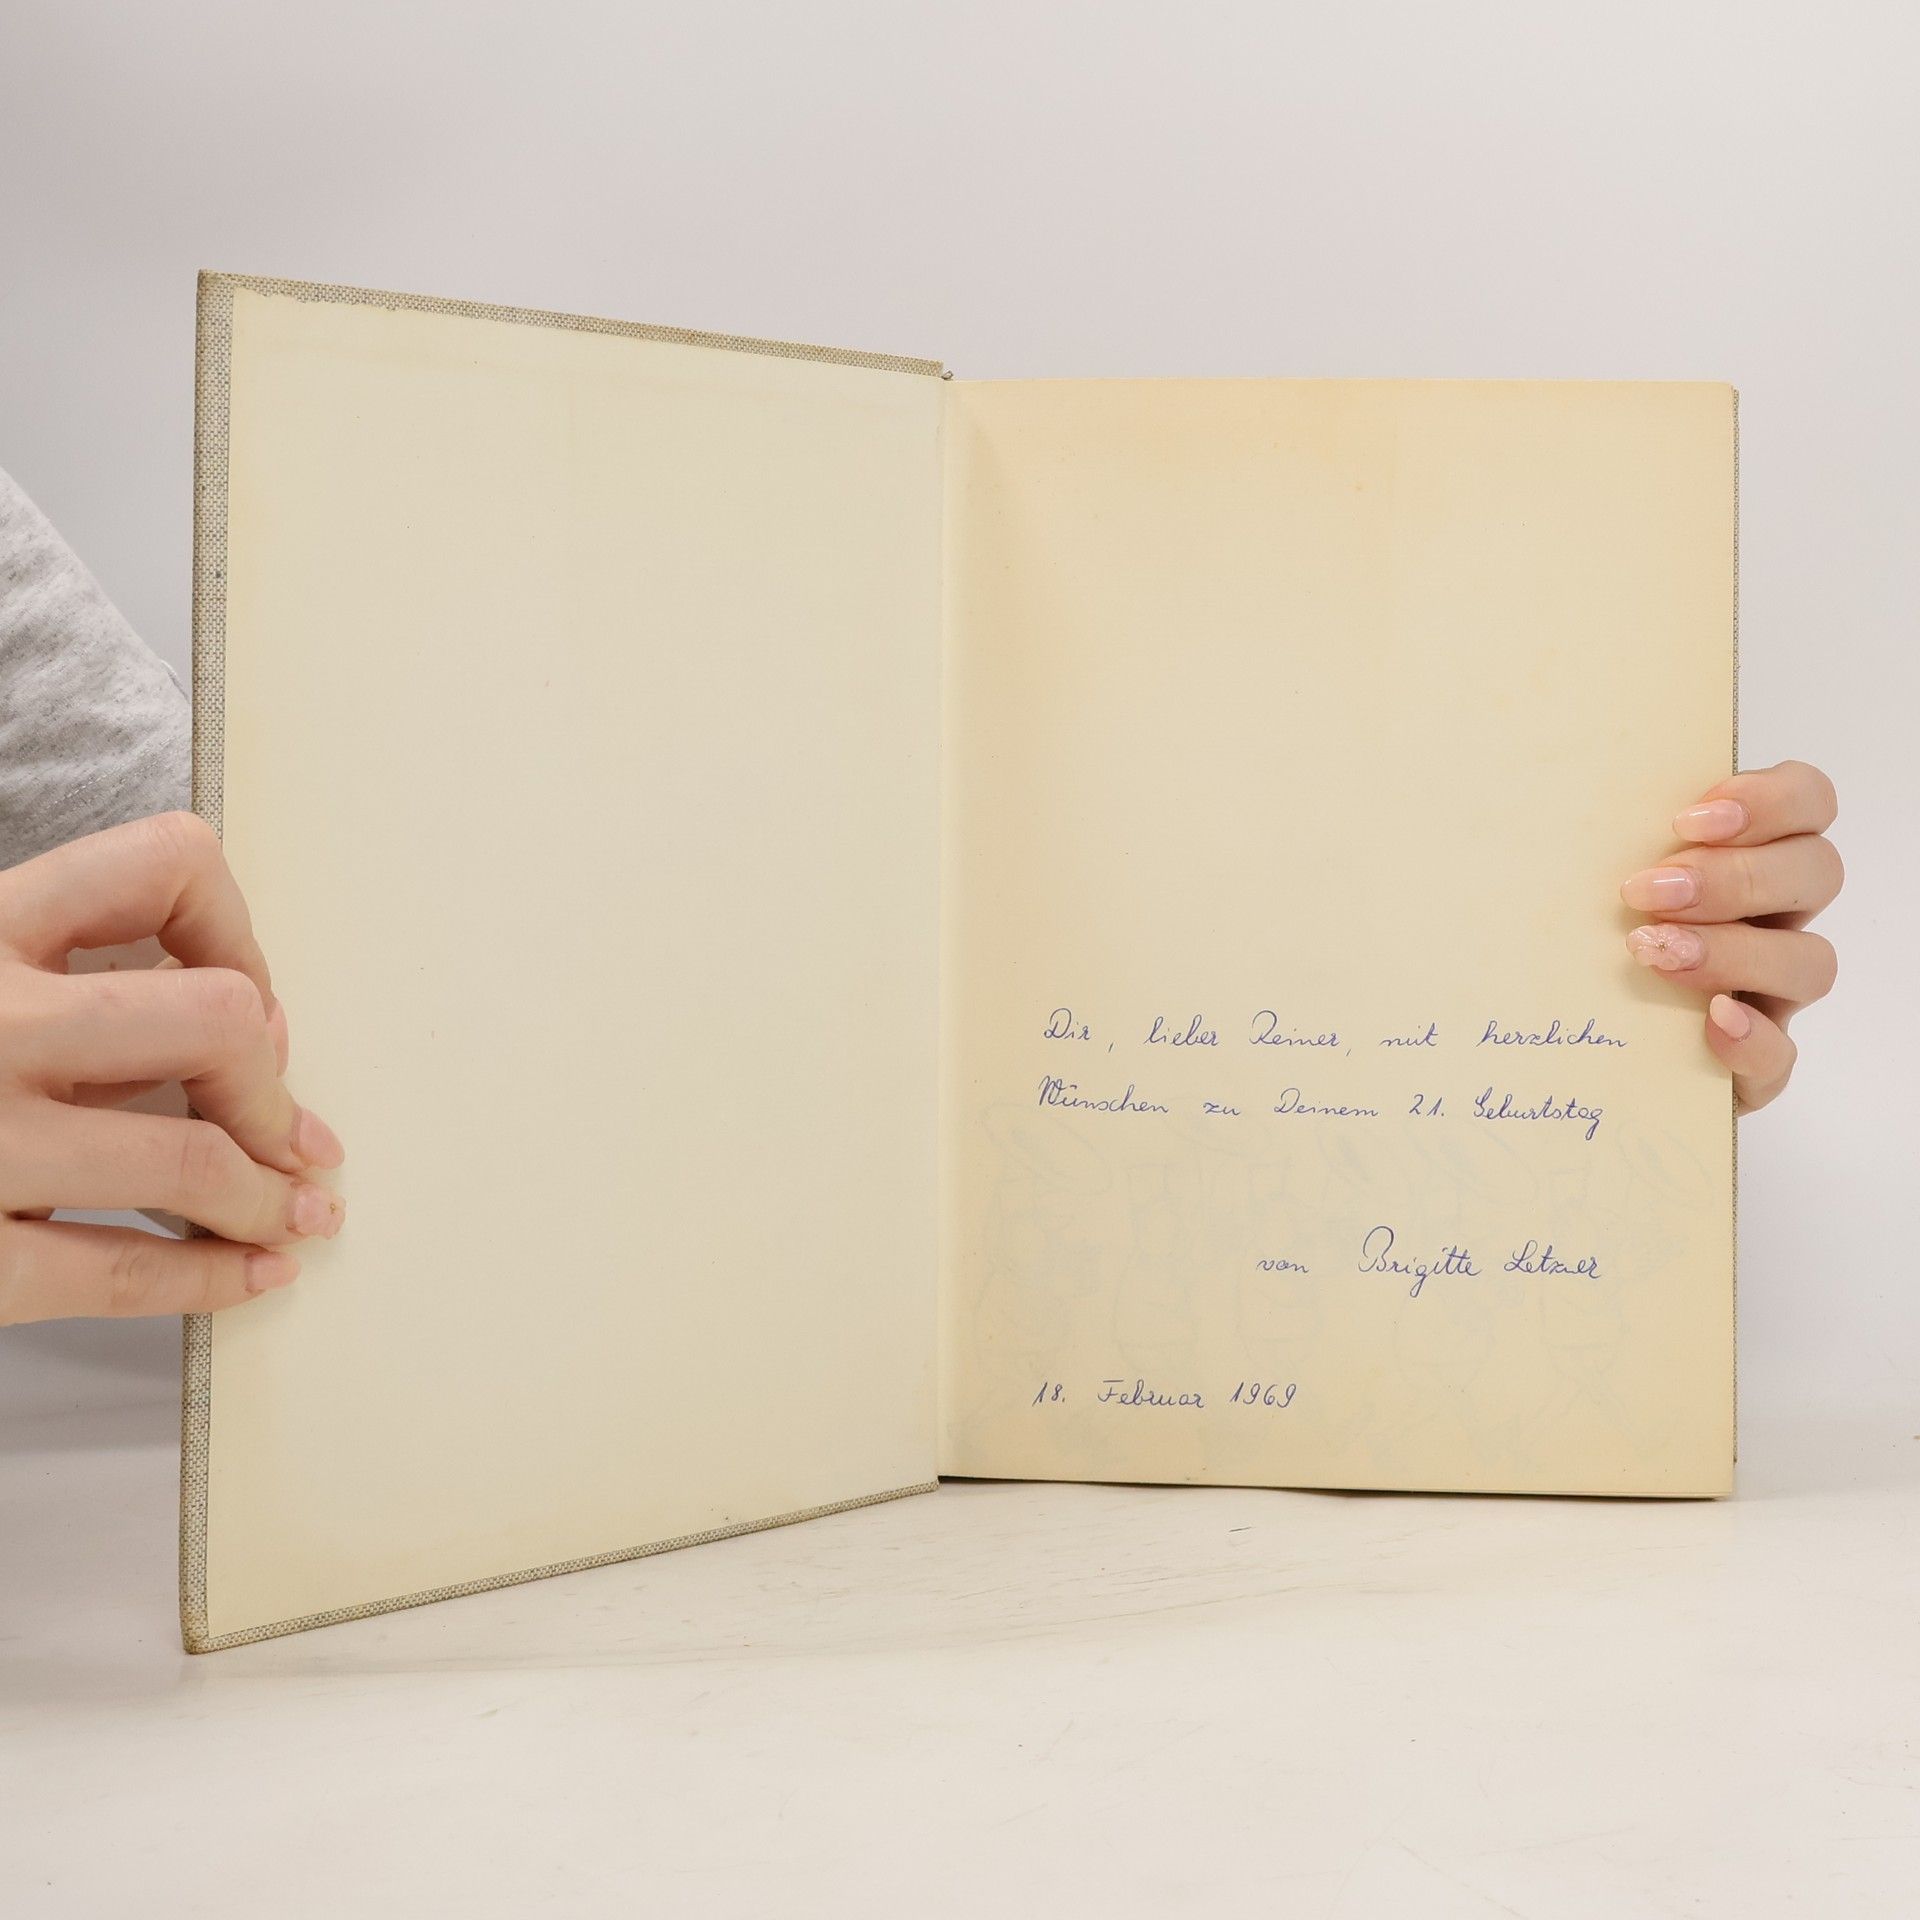 Dir, lieber Reiner, mit herzlichen
Wünschen zu Deinem 21. Geburtstag
von Brigitte Letzner
18. Februar 1969